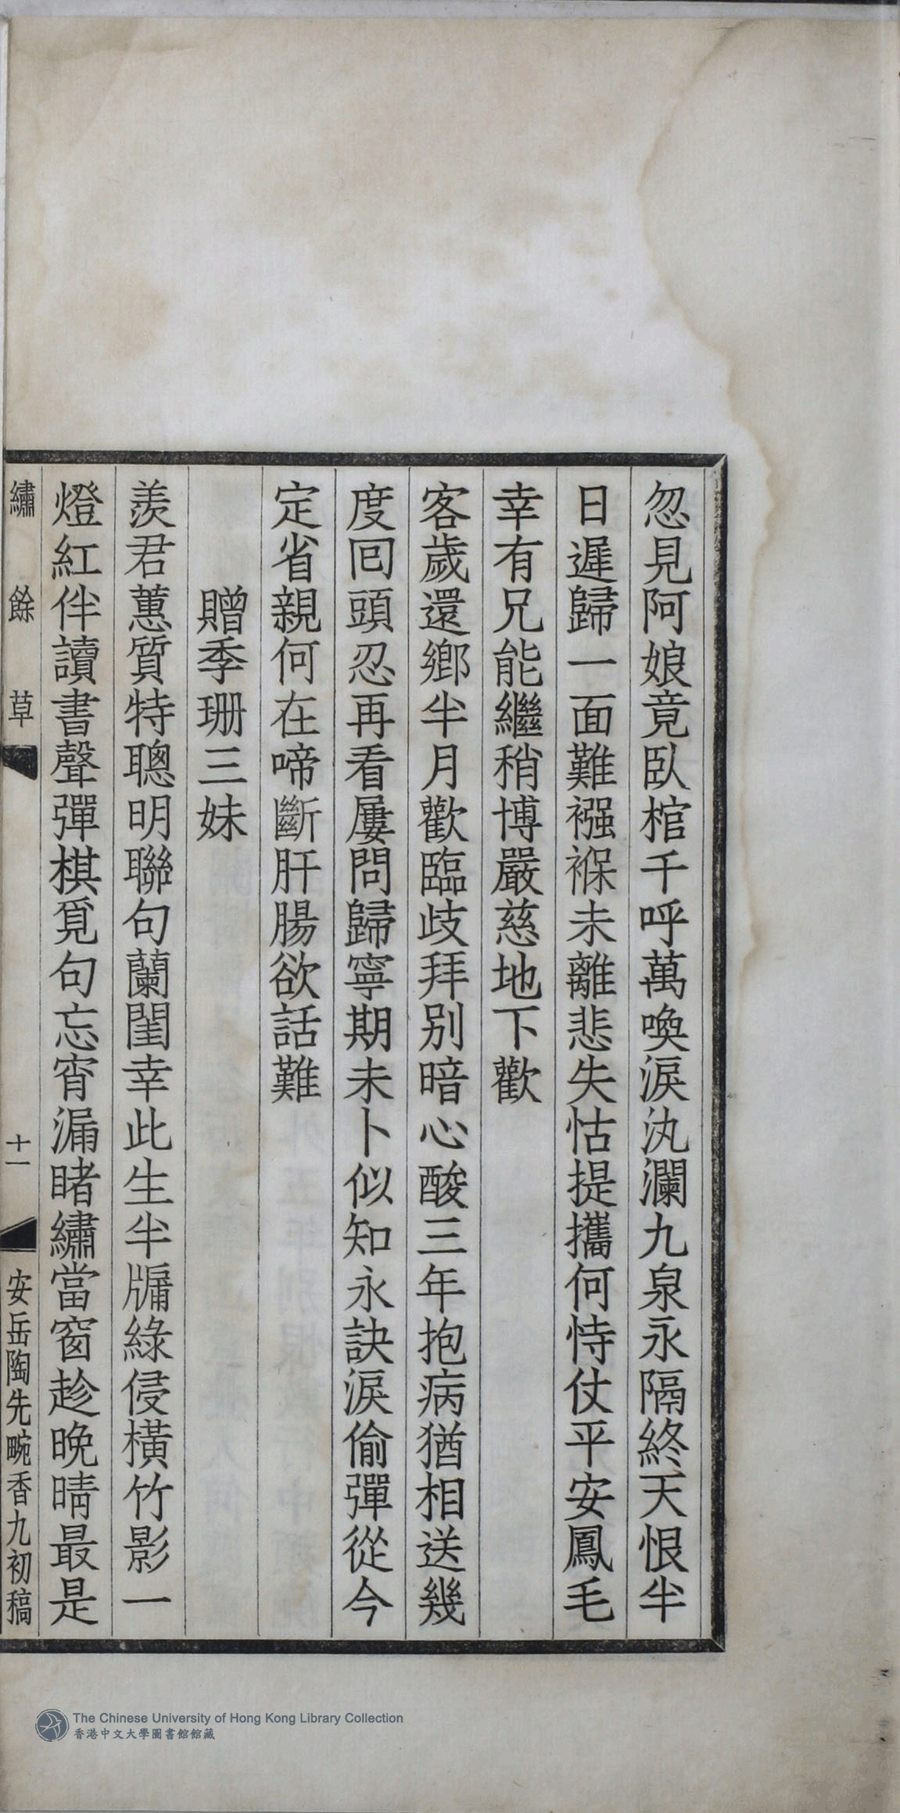 忽見阿娘竟臥棺千呼萬喚淚汍瀾九泉永隔終天恨半
日遲歸一面難襁褓未離悲失怙提攜何恃仗平安鳳毛
幸有兄能繼稍博嚴慈地下歡
客歲還鄉半月歡臨歧拜別暗心酸三年抱病猶相送幾
度回頭忍再看屢問歸寧期未卜似知永訣淚偷彈從今
定省親何在啼斷肝腸欲話難
贈季珊三妹
羨君蕙質特聰明聯句蘭閨幸此生半牖綠侵橫竹影一
燈紅伴讀書聲彈棋覓句忘宵漏睹繡當窗趁晚晴最是
繡餘草
十一
安岳陶先畹香九初稿
The Chinese University of Hong Kong Library Collection
香港中文大學圖書館館藏